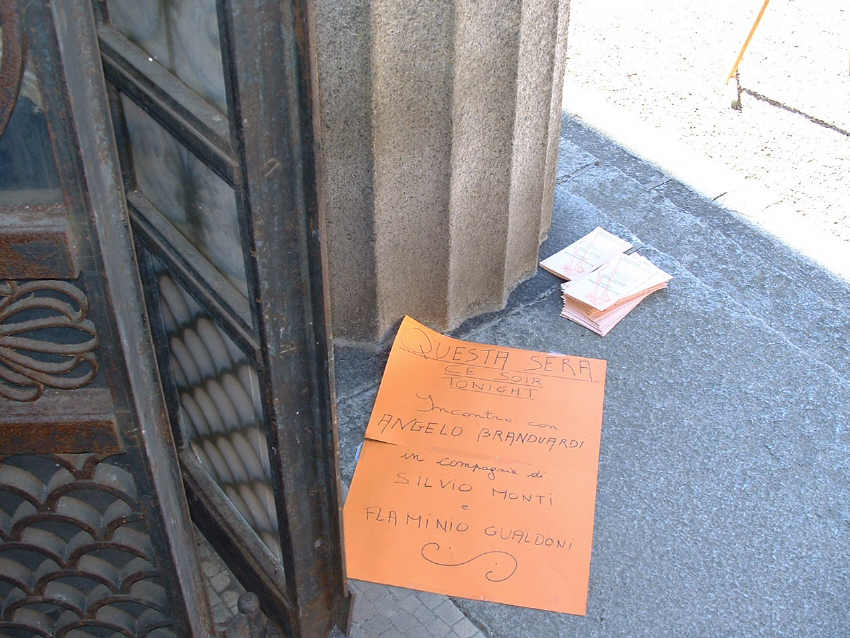 QUESTA SERA
CE SOIR
TONIGHT
Incontro con
ANGELO BRANDUARDI
in compagnia di
SILVIO MONTI
e
FLAMINIO GUALDONI